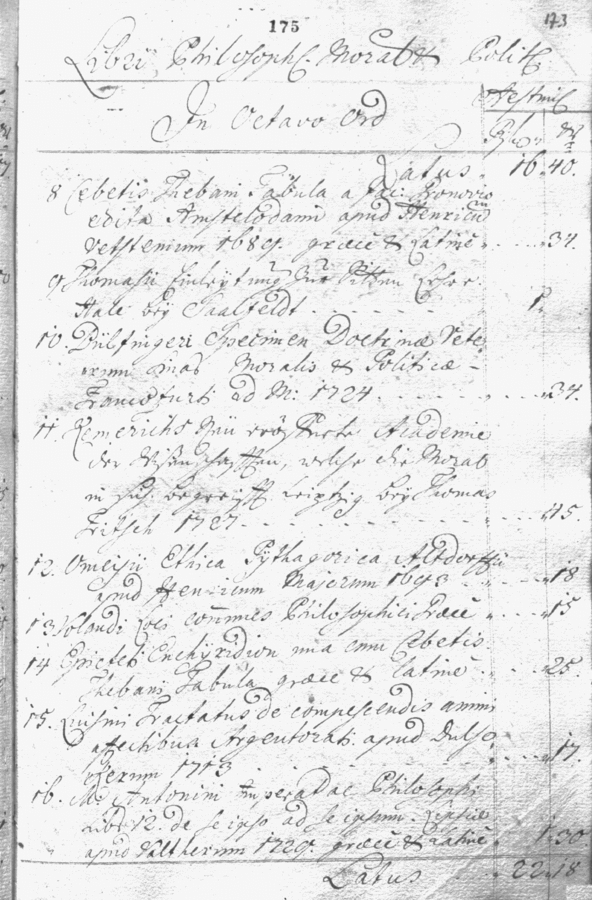 175
173
Libri Philosoph. Moral & Polit.
In Octavo Ord
Aestim
Latus 16. 40.
8 Cebetis Thebani Tabula a Jac: Gronovio
edita Amstelodami apud Henricum
Vetstenium 1689. græce & Latine 34.
9 Thomasii Einleytung zur Sitten Lehre.
Hale bey Saalfeldt 1.
10. Bülfingeri Specimen Doctrinæ Vete
rum Moralis & Politicæ
Francofurti ad M: 1724 34.
11. Remerichs Neu eröffnete Academie
der Wissenschafften, welche die Moral
in sich begreifft Leipzig bey Thomas
Fritsch 1727 45.
12. Omeisii Ethica Pythagorica Altdorffii
apud Henricum Majerum 1693 18
13 Loci communes Philosophici Græce 15
14 Epicteti Enchyridion una cum Cebetis
Thebani Tabula græce & latine 25.
15. Luisini Tractatus de compescendis animi
affectibus Argentorati apud Dulso
1713 17.
16. M. Antonini Imperad Philosophi
Libri 12. de se ipso ad se ipsum. Lipsiæ
apud Waltherum 1729. græce & Latine 1. 30.
Latus 22. 18